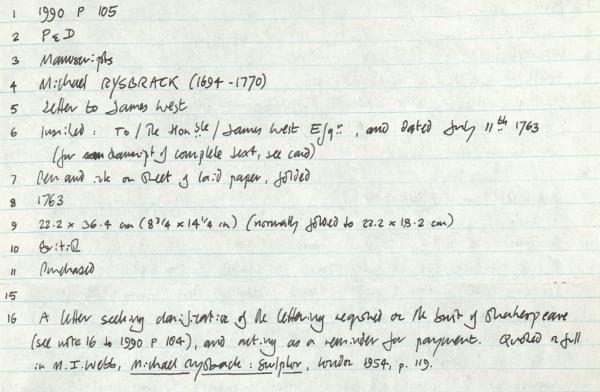 1 1990 P 105
2 P & D
3 Manuscripts
4 Michael RYSBRACK (1694-1770)
5 Letter to James West
6 Inscribed: To/The Honble/James West Esqr., and dated July 11th 1763
(for transcript of complete text, see card)
7 Pen and ink on sheet of laid paper, folded
8 1763
9 22.2 x 36.4 cm (8 3/4 x 14 1/4 in) (normally folded to 22.2 x 18.2 cm)
10 British
11 Purchased
15
16 A letter seeking clarification of the lettering required on the bust of Shakespeare
(see note 16 to 1990 P 104), and acting as a reminder for payment. Quoted in full
in M.I. Webb, Michael Rysbrack: Sculptor, London 1954, p. 119.